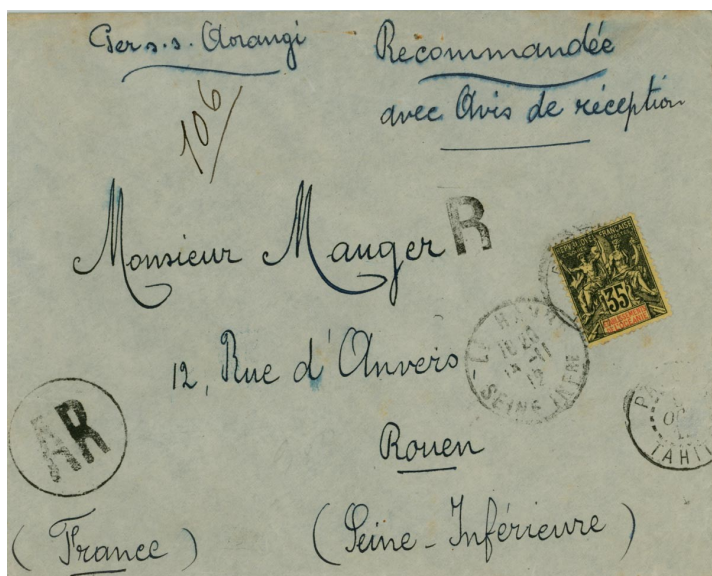 Per s.s. Aorangi
Recommandée
avec Avis de réception
106
R
Monsieur Mauger
REPUBLIQUE FRANÇAISE
POSTES
35
12, Rue d'Anvers
LE HAVRE
SEINE INFRE
AR
TAHITI
Rouen
(Seine-Inférieure)
(France)